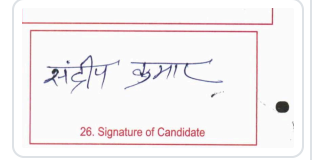 संदीप कुमार
26. Signature of Candidate